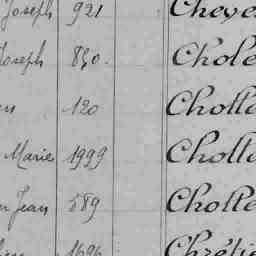 Joseph 921 Cheve
Joseph 840. Chole
120 Cholle
Marie 1999 Cholle
Jean 589 Cholle
1696 Chréti